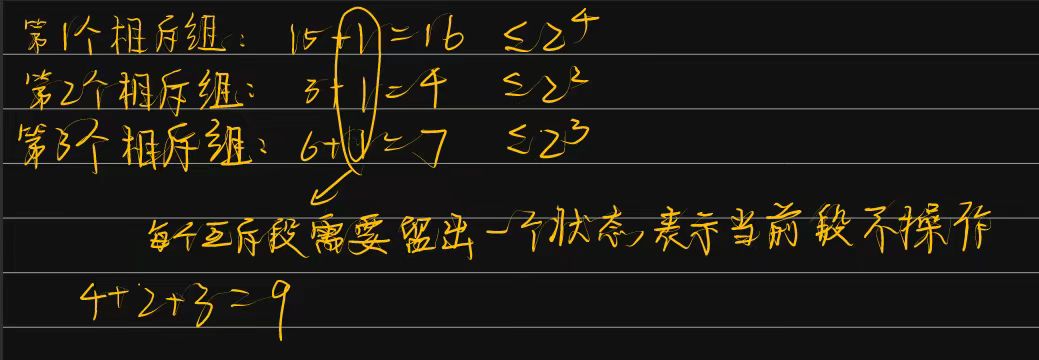 第1个相斥组: 15+1=16 ≤2^4
第2个相斥组: 3+1=4 ≤2^2
第3个相斥组: 6+1=7 ≤2^3
每个互斥段需要留出一个状态,表示当前段不操作
4+2+3=9